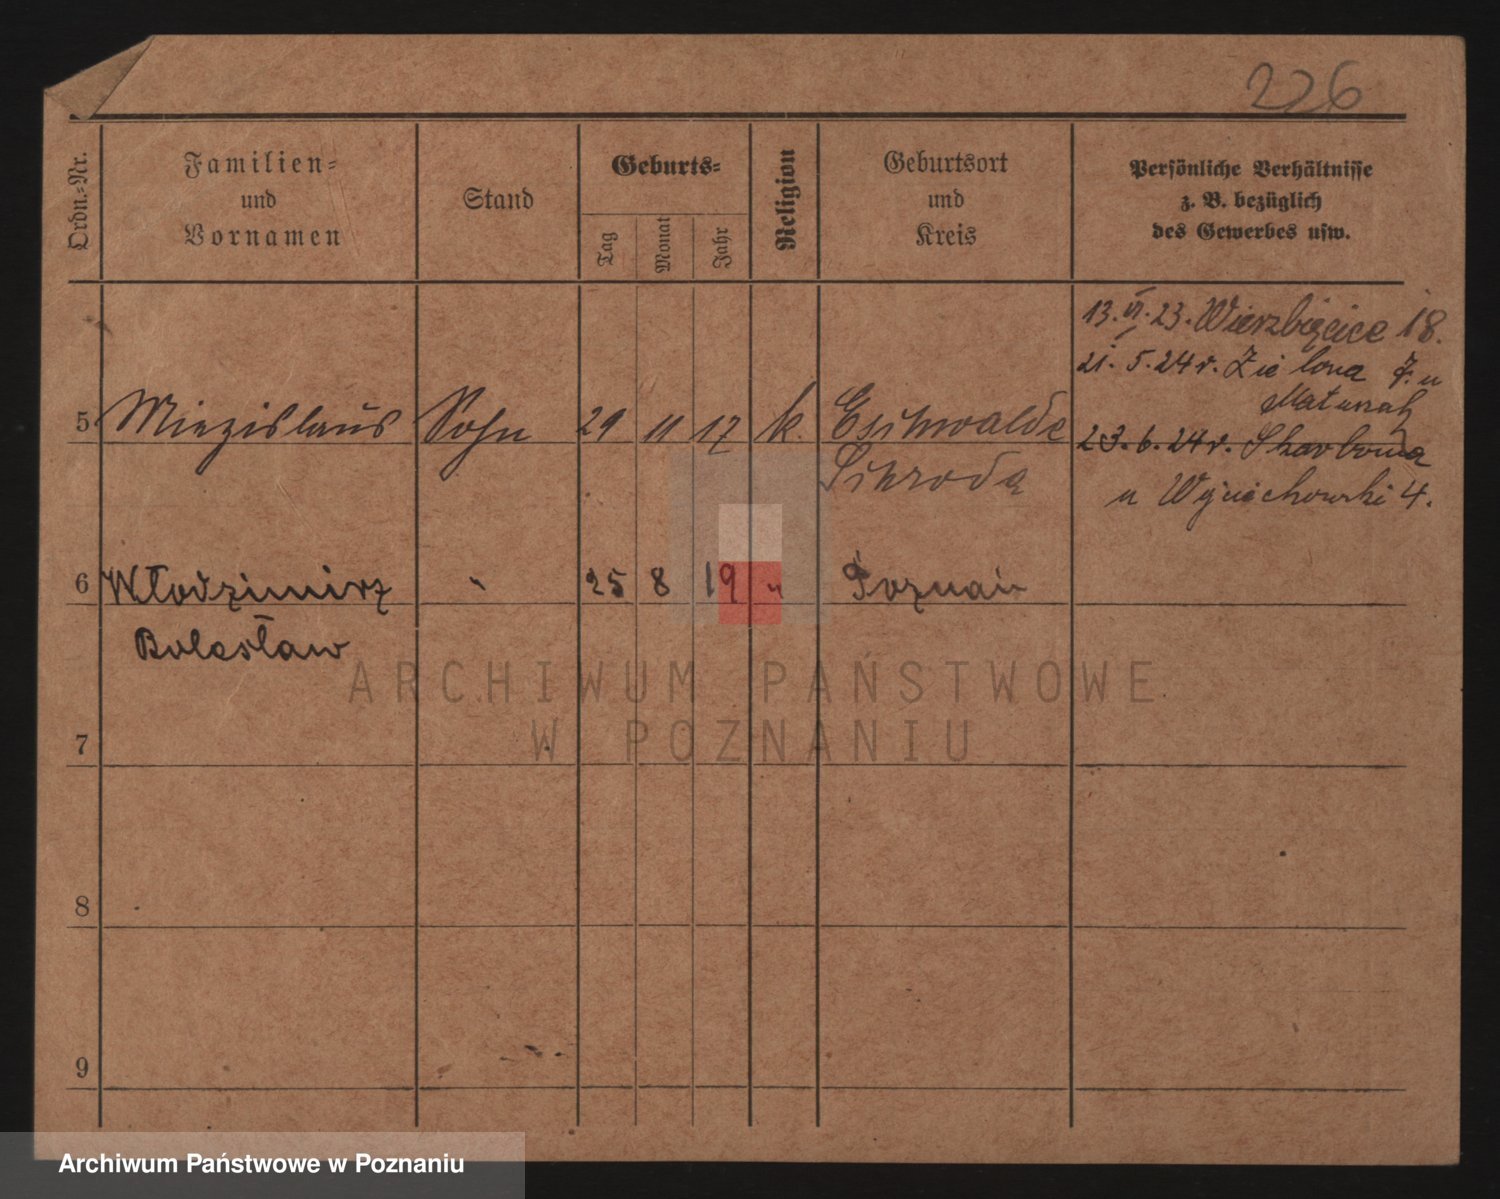 226
Ordn.-Nr.
Familien-
und
Vornamen
Stand
Geburts-
Tag
Monat
Jahr
Religion
Geburtsort
und
Kreis
Persönliche Verhältnisse
z. B. bezüglich
des Gewerbes usw.
13. VI. 23. Wierzbięcice 18.
21. 5. 24 r. Zielona 7. u
5 Miezislaus Sohn 29 11 17 k.
23. 6. 24 r. Skarbowa
Schroda
u Wojciechowski 4.
6 Włodzimirz " 25 8 19 " Poznań
Bolesław
ARCHIWUM PAŃSTWOWE
W POZNANIU
7
8
9
Archiwum Państwowe w Poznaniu